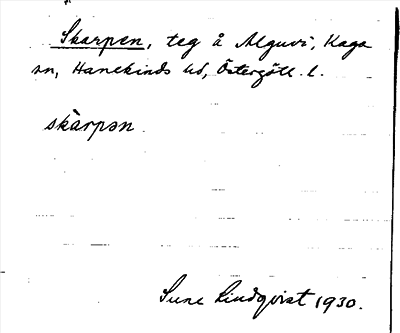 Skarpen, teg å Alguvi, Kaga
sn, Hanekinds hd, Östergötl. l.
skàrpən.
Sune Lindqvist 1930.